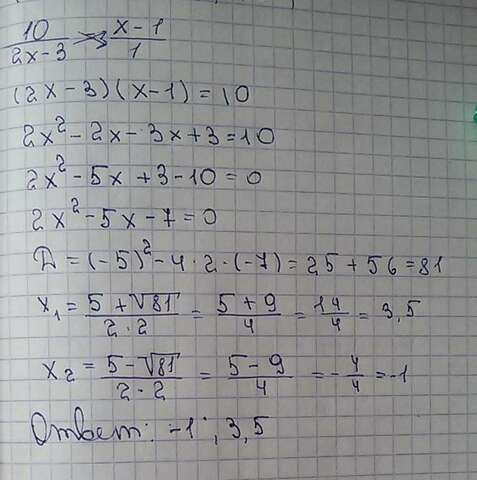 10/(2x-3) = (x-1)/1
(2x-3)(x-1)=10
2x²-2x-3x+3=10
2x²-5x+3-10=0
2x²-5x-7=0
D=(-5)²-4·2·(-7)=25+56=81
x₁=(5+√81)/(2·2)=(5+9)/4=14/4=3,5
x₂=(5-√81)/(2·2)=(5-9)/4=-4/4=-1
Ответ: -1; 3,5